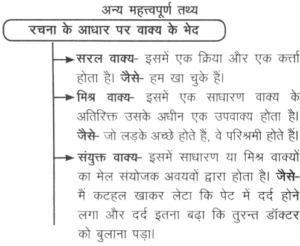 अन्य महत्त्वपूर्ण तथ्य
रचना के आधार पर वाक्य के भेद
सरल वाक्य- इसमें एक क्रिया और एक कर्त्ता
होता है। जैसे- हम खा चुके हैं।
मिश्र वाक्य- इसमें एक साधारण वाक्य के
अतिरिक्त उसके अधीन एक उपवाक्य होता है।
जैसे- जो लड़के अच्छे होते हैं, वे परिश्रमी होते हैं।
संयुक्त वाक्य- इसमें साधारण या मिश्र वाक्यों
का मेल संयोजक अवयवों द्वारा होता है। जैसे-
मैं कटहल खाकर लेटा कि पेट में दर्द होने
लगा और दर्द इतना बढ़ा कि तुरन्त डॉक्टर
को बुलाना पड़ा।